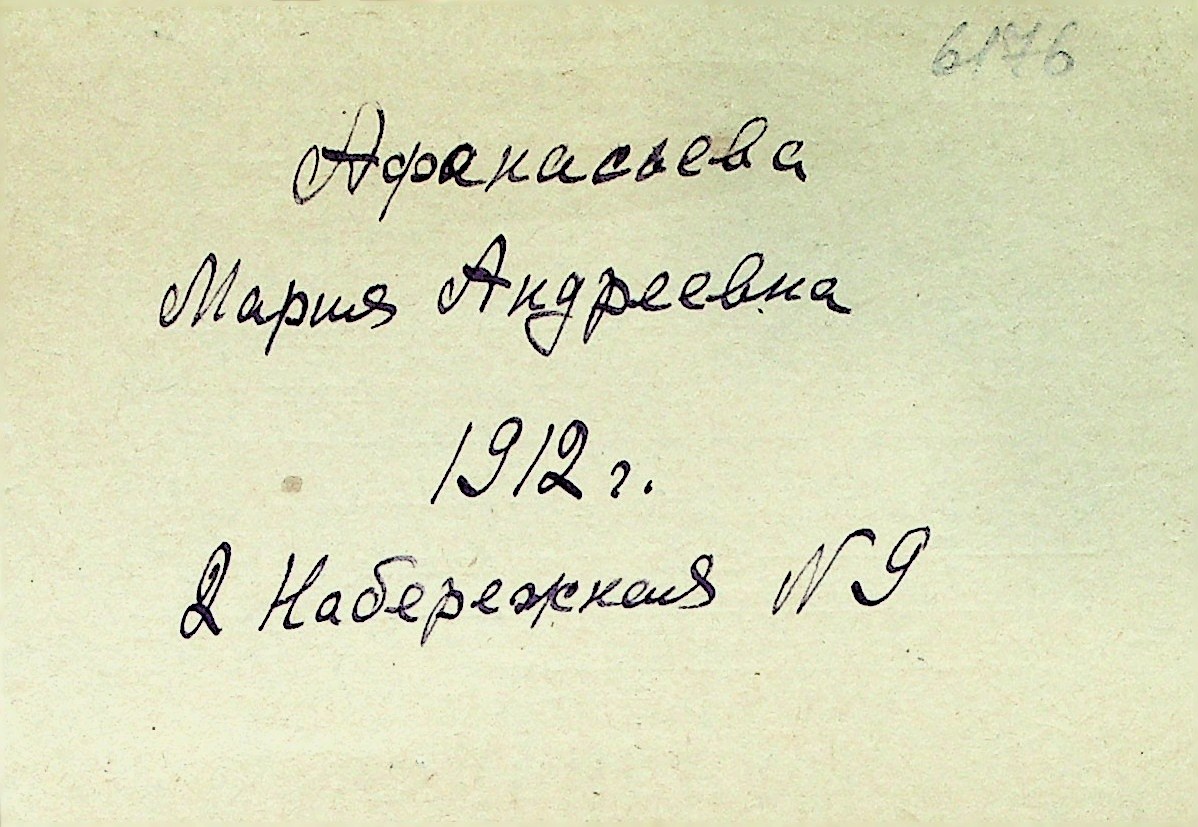 6176
Афанасьева
Мария Андреевна
1912 г.
2 Набережная N 9